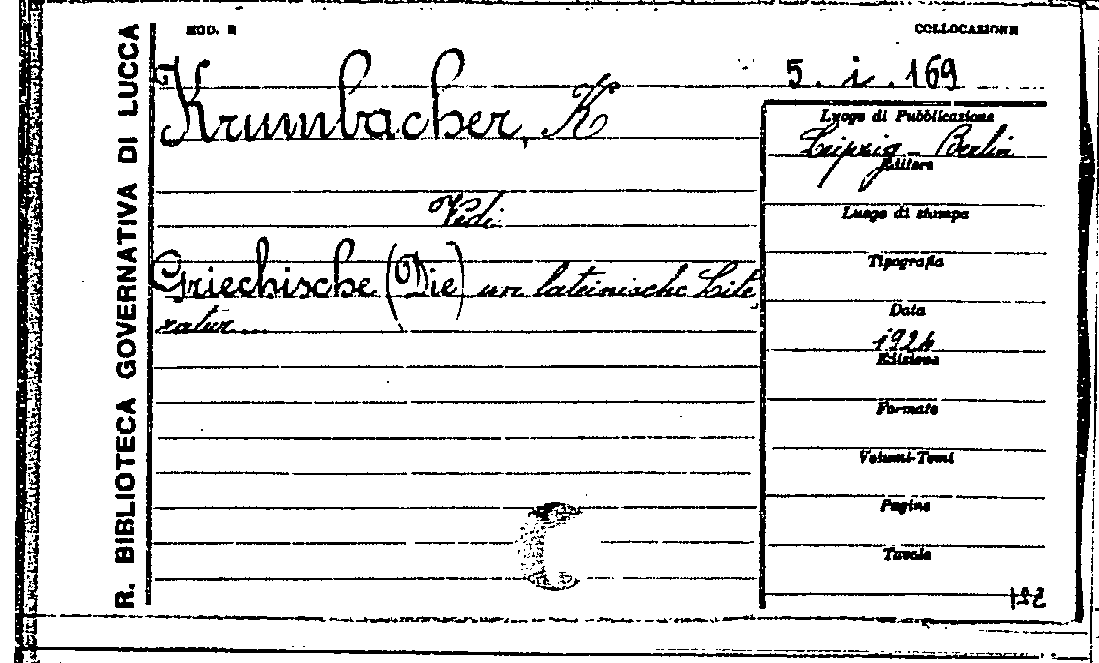 R. BIBLIOTECA GOVERNATIVA DI LUCCA
MOD. R
COLLOCAZIONE
5. i. 169
Krumbacher, K
Vedi
Griechische (Die) un lateinische Lite,
ratur...
Luogo di Pubblicazione
Leipzig - Berlin
Editore
Luogo di stampa
Tipografia
Data
1924
Edizione
Formato
Volumi-Tomi
Pagine
Tavole